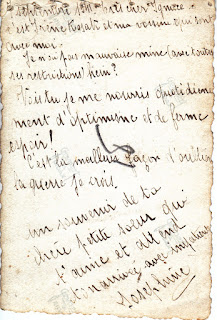 Septembre 1941. Très cher Ignace
c'est Irène Rosati et ma cousine qui sont
avec moi.
Je n'ai pas mauvaise mine (avec toutes
ses restrictions) hein?
Vois tu je me nourris quotidienne
ment d'optimisme et de ferme
espoir!
C'est la meilleure façon d'oublier
la guerre je crois.
un souvenir de ta
chère petite sœur qui
t'aime et attend
ton arrivée avec impatience
Joséphine